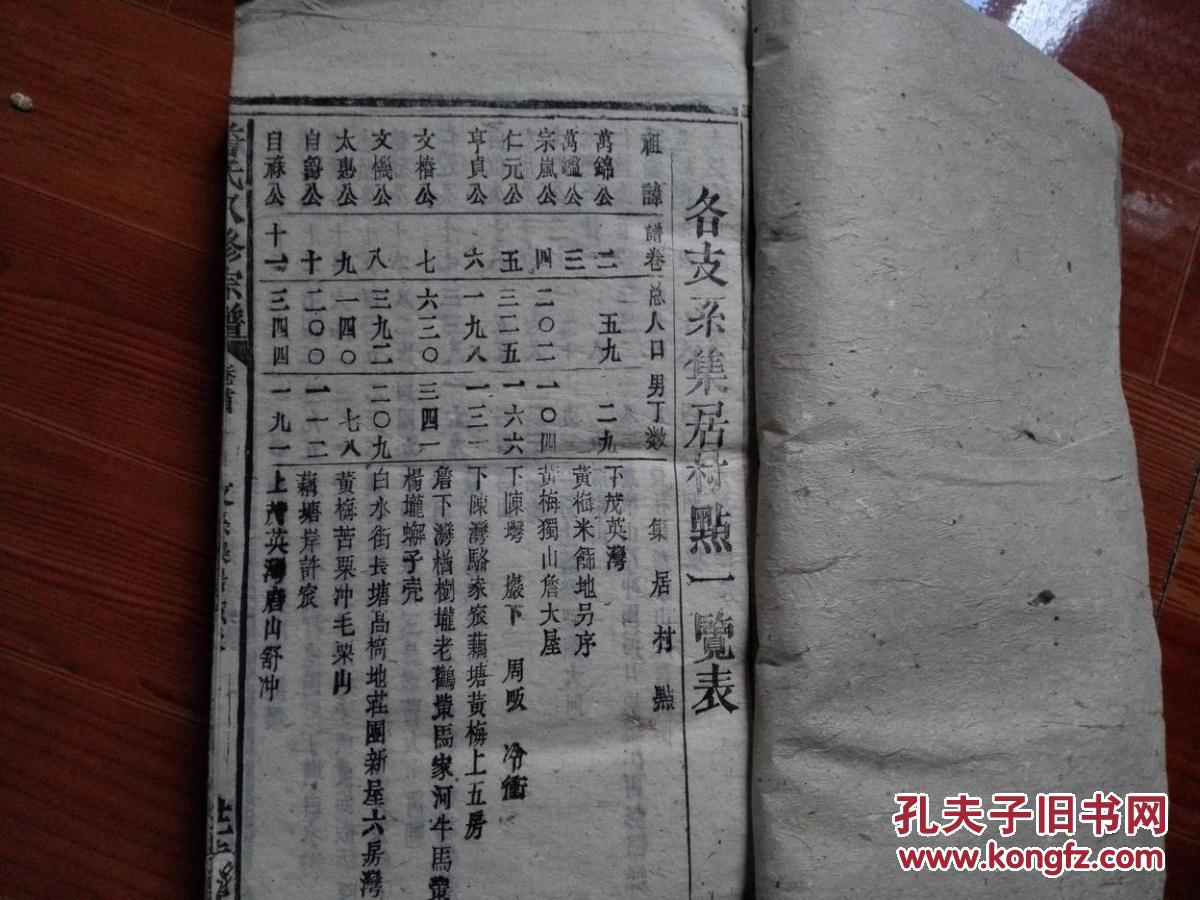 各支系集居村點一覽表
祖諱 譜卷 总人口 男丁数 集居村點
萬錦公 二 五九 二九 下茂英灣
萬鑑公 三 黃梅米篩地另序
宗嵐公 四 二〇二 一〇四 黃梅獨山詹大屋
仁元公 五 三二五 一六六 下陳灣 巖下 周畈 冷衝
亨貞公 六 一九八 一三一 下陳灣駱家宸藕塘黃梅上五房
文椿公 七 六三〇 三四一 詹下灣楢樹壠老鸛業馬家河牛馬業
楊壠蠏子壳
文機公 八 三九二 二〇九 白水街長塘高椅地莊園新屋六房灣
太惠公 九 一四〇 七八 黃梅苦栗冲毛栗山
自爵公 十 二〇〇 一一二 藕塘岸許宸
自祿公 十一 三四四 一九一 上茂英灣磨山舒冲
詹氏 修宗譜 卷首
孔夫子旧书网
www.kongfz.com